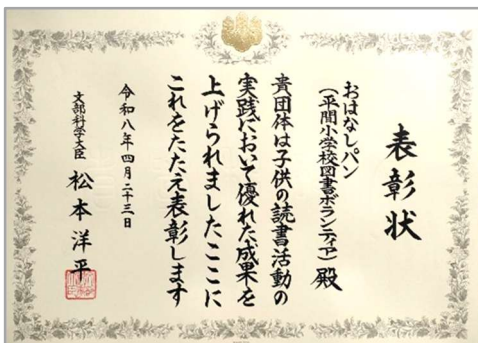 表彰状
おはなしパン
(平間小学校図書ボランティア) 殿
貴団体は子供の読書活動の
実践において優れた成果を
上げられましたここに
これをたたえ表彰します
令和八年四月二十三日
文部科学大臣 松本洋平